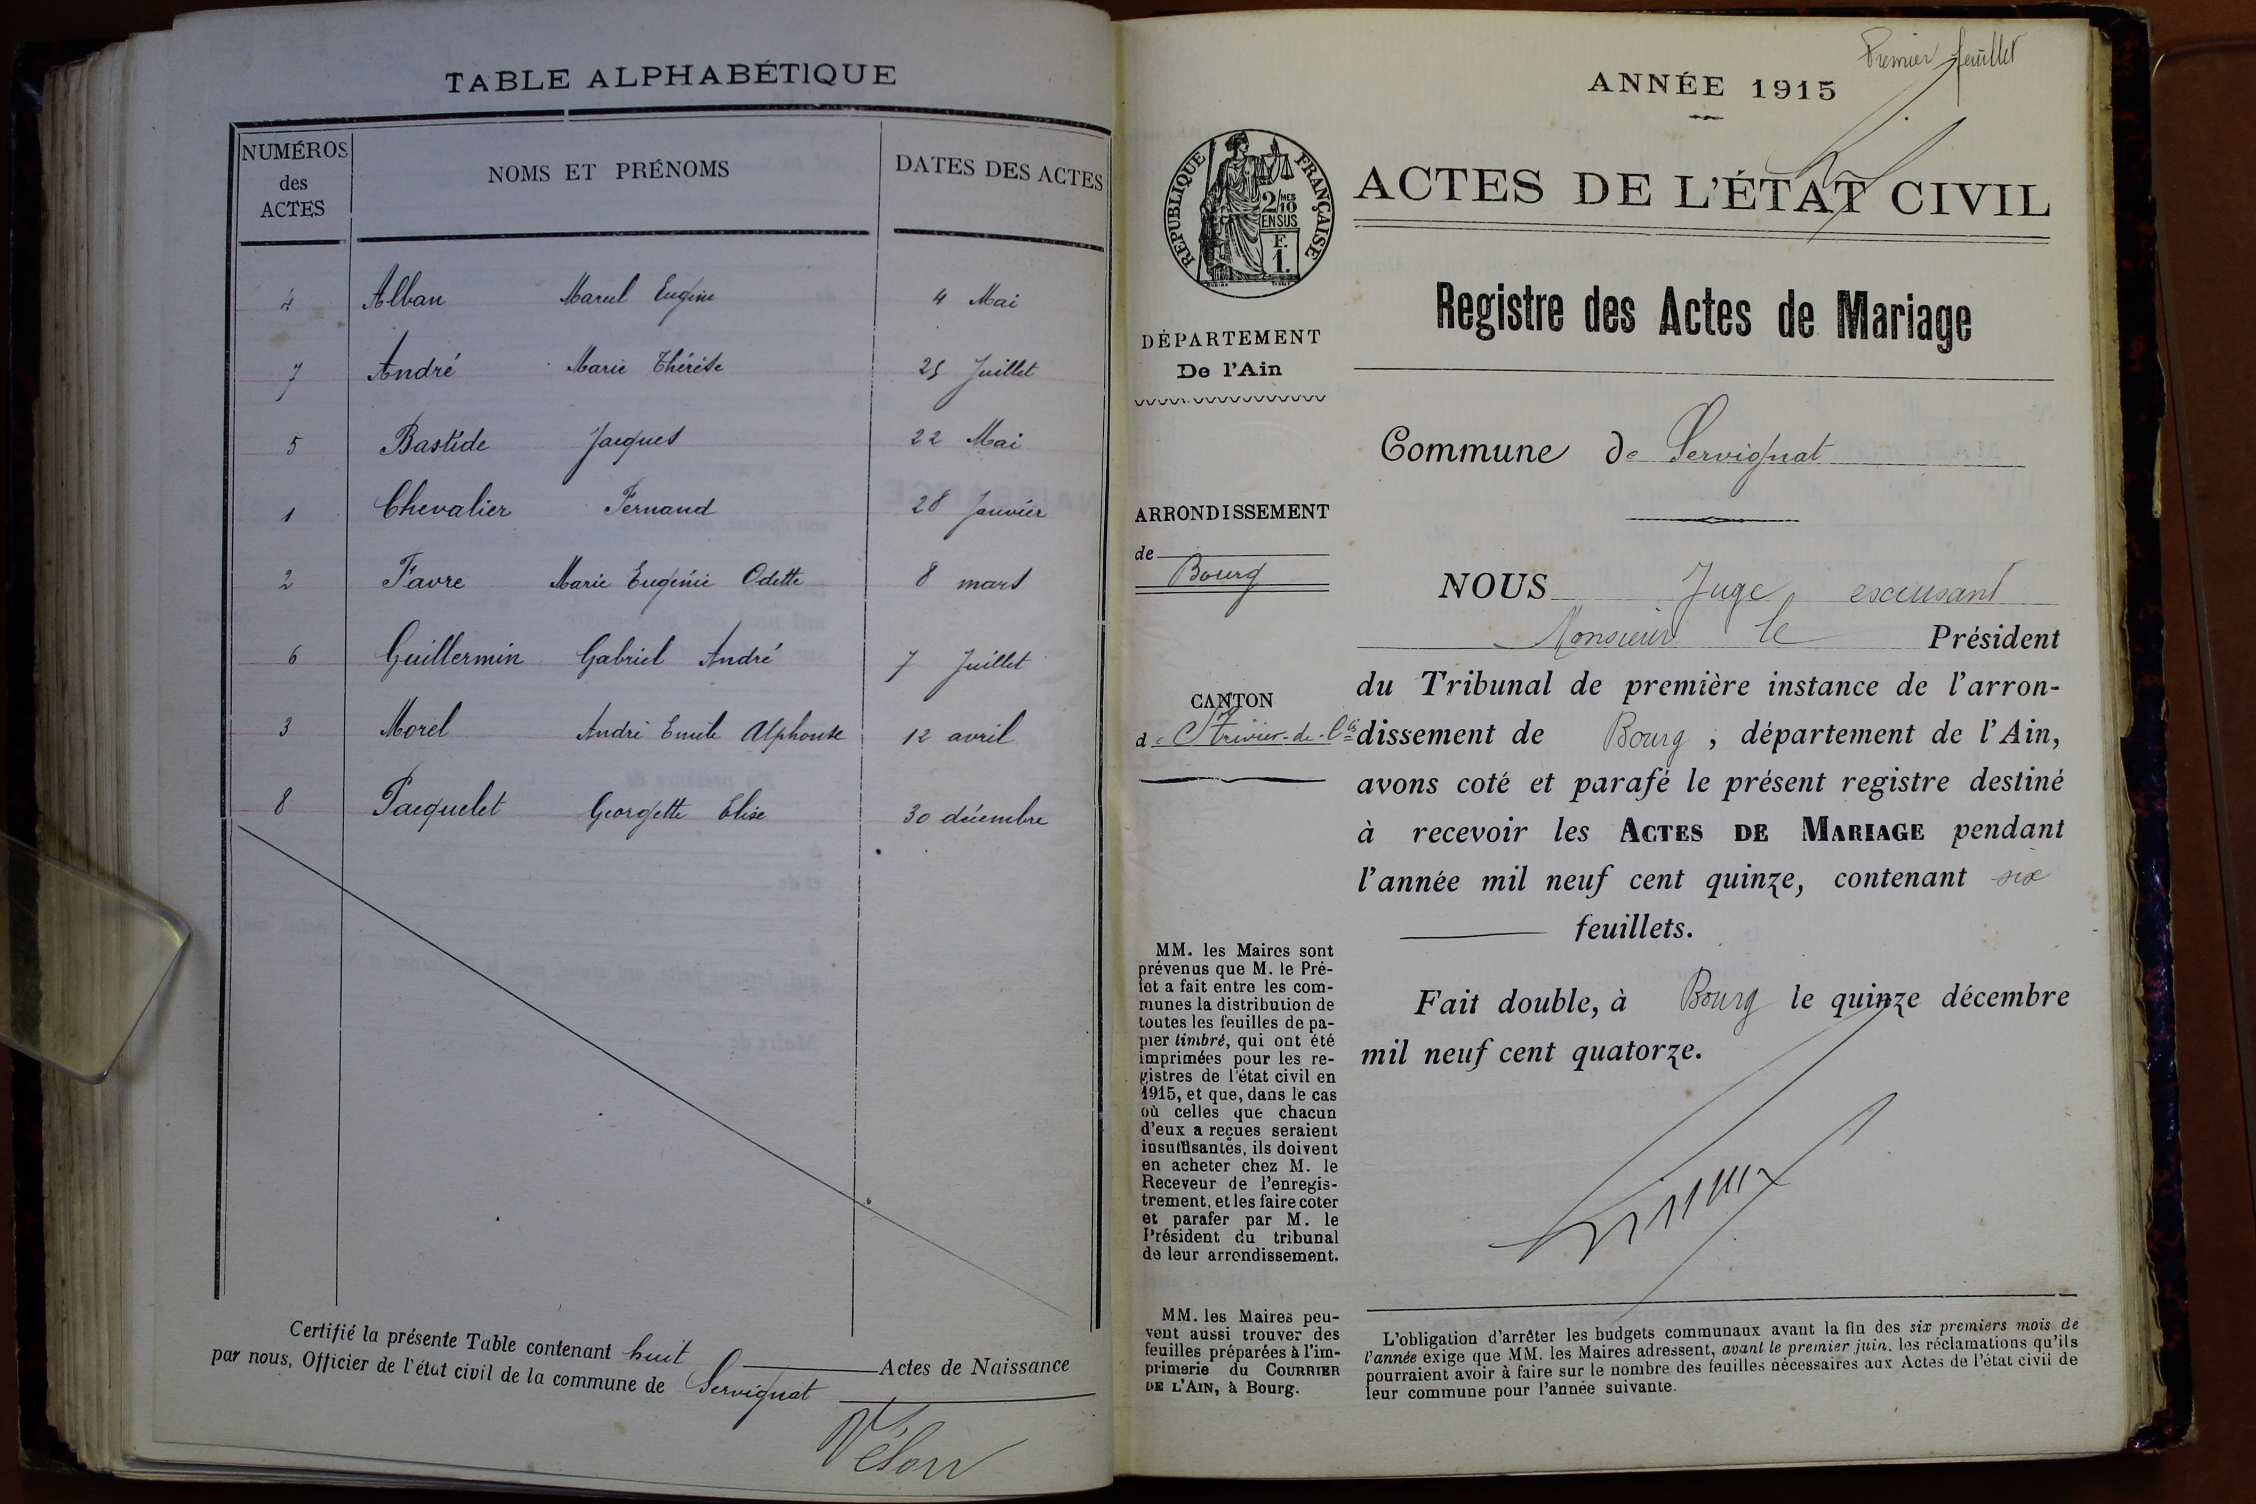 TABLE ALPHABÉTIQUE
NUMÉROS des ACTES NOMS ET PRÉNOMS DATES DES ACTES
4 Alban Marcel Eugène 4 Mai
7 André Marie Thérèse 25 Juillet
5 Bastide Jacques 22 Mai
1 Chevalier Fernand 28 Janvier
2 Favre Marie Eugénie Odette 8 mars
6 Guillermin Gabriel André 7 Juillet
3 Morel André Emile Alphonse 12 avril
8 Pacquelet Georgette Elise 30 décembre
Certifié la présente Table contenant huit Actes de Naissance
par nous, Officier de l'état civil de la commune de Servignat
Premier feuillet
ANNÉE 1915
RÉPUBLIQUE FRANÇAISE
2/10 MES
EN SUS
F.
1.
ACTES DE L'ÉTAT CIVIL
Registre des Actes de Mariage
DÉPARTEMENT
De l'Ain
Commune de Servignat
ARRONDISSEMENT
de
Bourg
CANTON
de St Trivier-de-Ctes
NOUS Juge excusant
Monsieur le Président
du Tribunal de première instance de l'arron-
dissement de Bourg, département de l'Ain,
avons coté et parafé le présent registre destiné
à recevoir les ACTES DE MARIAGE pendant
l'année mil neuf cent quinze, contenant six
feuillets.
Fait double, à Bourg le quinze décembre
mil neuf cent quatorze.
MM. les Maires sont
prévenus que M. le Pré-
fet a fait entre les com-
munes la distribution de
toutes les feuilles de pa-
pier timbré, qui ont été
imprimées pour les re-
gistres de l'état civil en
1915, et que, dans le cas
où celles que chacun
d'eux a reçues seraient
insuffisantes, ils doivent
en acheter chez M. le
Receveur de l'enregis-
trement, et les faire coter
et parafer par M. le
Président du tribunal
de leur arrondissement.
MM. les Maires peu-
vent aussi trouver des
feuilles préparées à l'im-
primerie du COURRIER
DE L'AIN, à Bourg.
L'obligation d'arrêter les budgets communaux avant la fin des six premiers mois de
l'année exige que MM. les Maires adressent, avant le premier juin, les réclamations qu'ils
pourraient avoir à faire sur le nombre des feuilles nécessaires aux Actes de l'état civil de
leur commune pour l'année suivante.